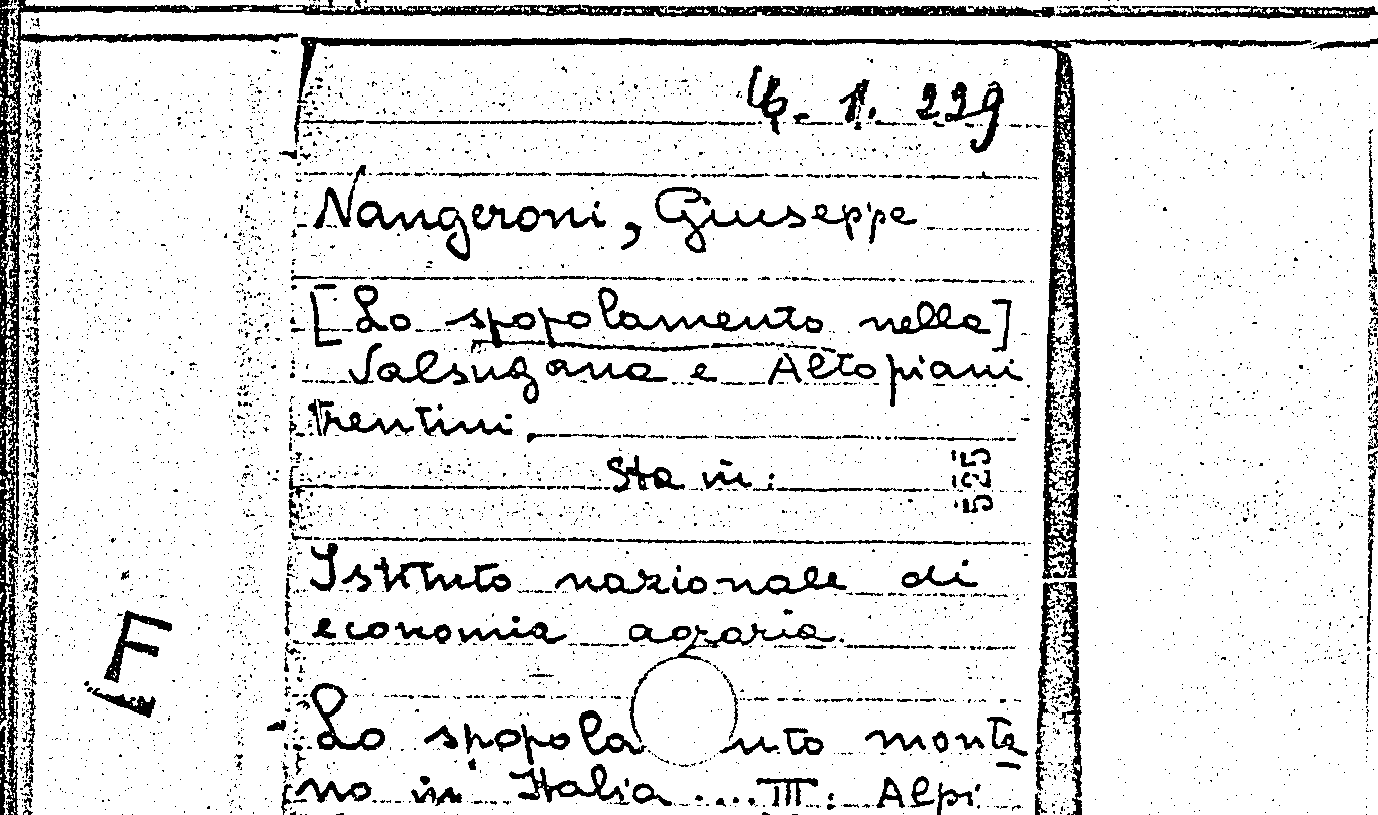 1. 229
Nangeroni, Giuseppe
[Lo spopolamento nella]
Valsugana e Altopiani
trentini.
Sta in:
525
Istituto nazionale di
economia agraria.
Lo spopola nto monta
no in Italia .... III: Alpi
F